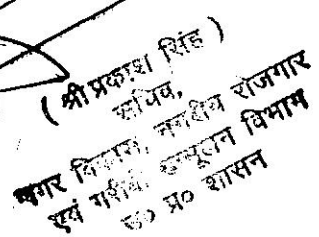 ( श्री प्रकाश सिंह )
सचिव,
नगर विकास, नगरीय रोजगार
एवं गरीबी उन्मूलन विभाग
उ० प्र० शासन